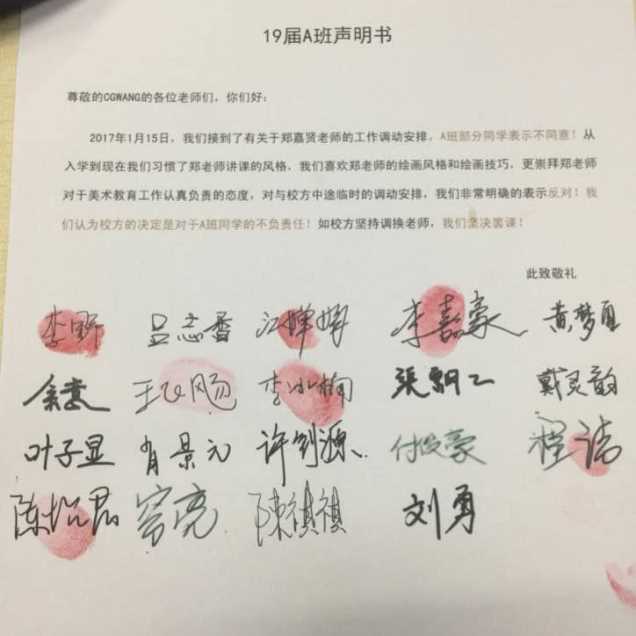 19届A班声明书
尊敬的CGWANG的各位老师们，你们好：
2017年1月15日，我们接到了有关于郑嘉贤老师的工作调动安排，A班部分同学表示不同意！从
入学到现在我们习惯了郑老师讲课的风格，我们喜欢郑老师的绘画风格和绘画技巧，更崇拜郑老师
对于美术教育工作认真负责的态度，对与校方中途临时的调动安排，我们非常明确的表示反对！我
们认为校方的决定是对于A班同学的不负责任！如校方坚持调换老师，我们坚决罢课！
此致敬礼
李野 吕志香 江婵娟 李嘉豪 黄梦
李小楠 戴灵韵
叶子显 肖景元 许剑源 程诗
陈 容亮 陳祺祺 刘勇